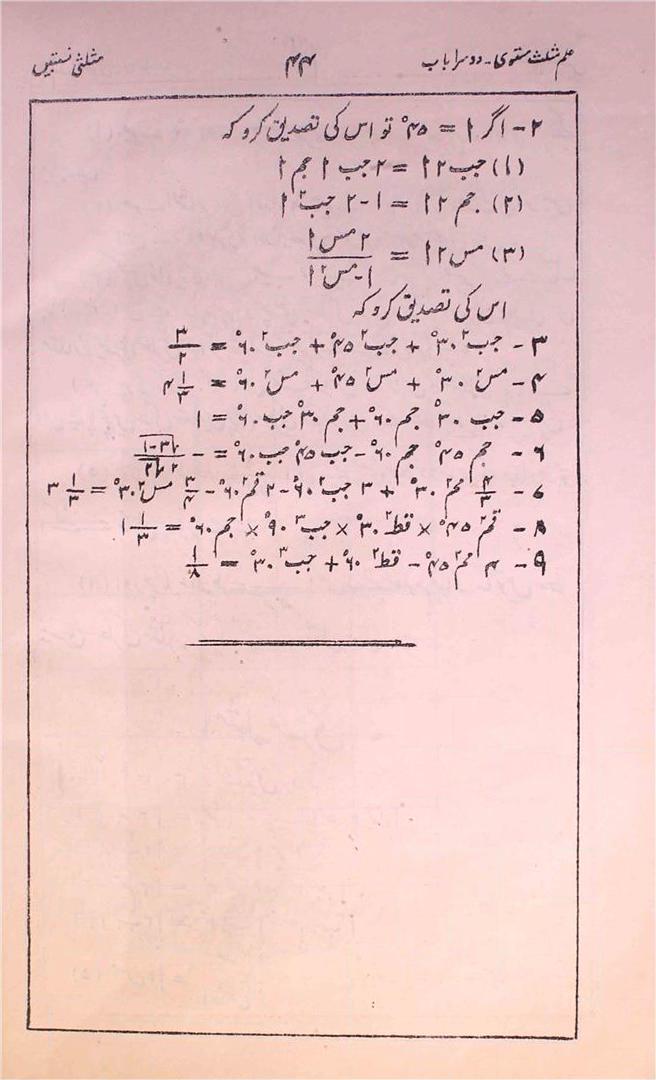 علم مثلث مستوی - دوسرا باب ۴۴ مثلثی نسبتیں
۲- اگر ا = ۴۵° تو اس کی تصدیق کرو کہ
(۱) جب ۲ا = ۲ جب ا جم ا
(۲) جم ۲ا = ۱ - ۲ جب² ا
(۳) مس ۲ا = ۲ مس ا / ۱ - مس² ا
اس کی تصدیق کرو کہ
۳- جب² ۳۰° + جب² ۴۵° + جب² ۶۰° = ۳/۲
۴- مس² ۳۰° + مس² ۴۵° + مس² ۶۰° = ۴ ۱/۳
۵- جب ۳۰° جم ۶۰° + جم ۳۰° جب ۶۰° = ۱
۶- جم ۴۵° جم ۶۰° - جب ۴۵° جب ۶۰° = - (√۳ - ۱) / ۲√۲
۷- ۴/۳ مم² ۳۰° + ۳ جب² ۶۰° - ۲ قم² ۶۰° - ۳/۴ مس² ۳۰° = ۳ ۱/۳
۸- قم² ۴۵° × قط² ۳۰° × جب³ ۹۰° × جم ۶۰° = ۱ ۱/۳
۹- ۴ مم² ۴۵° - قط² ۶۰° + جب³ ۳۰° = ۱/۸